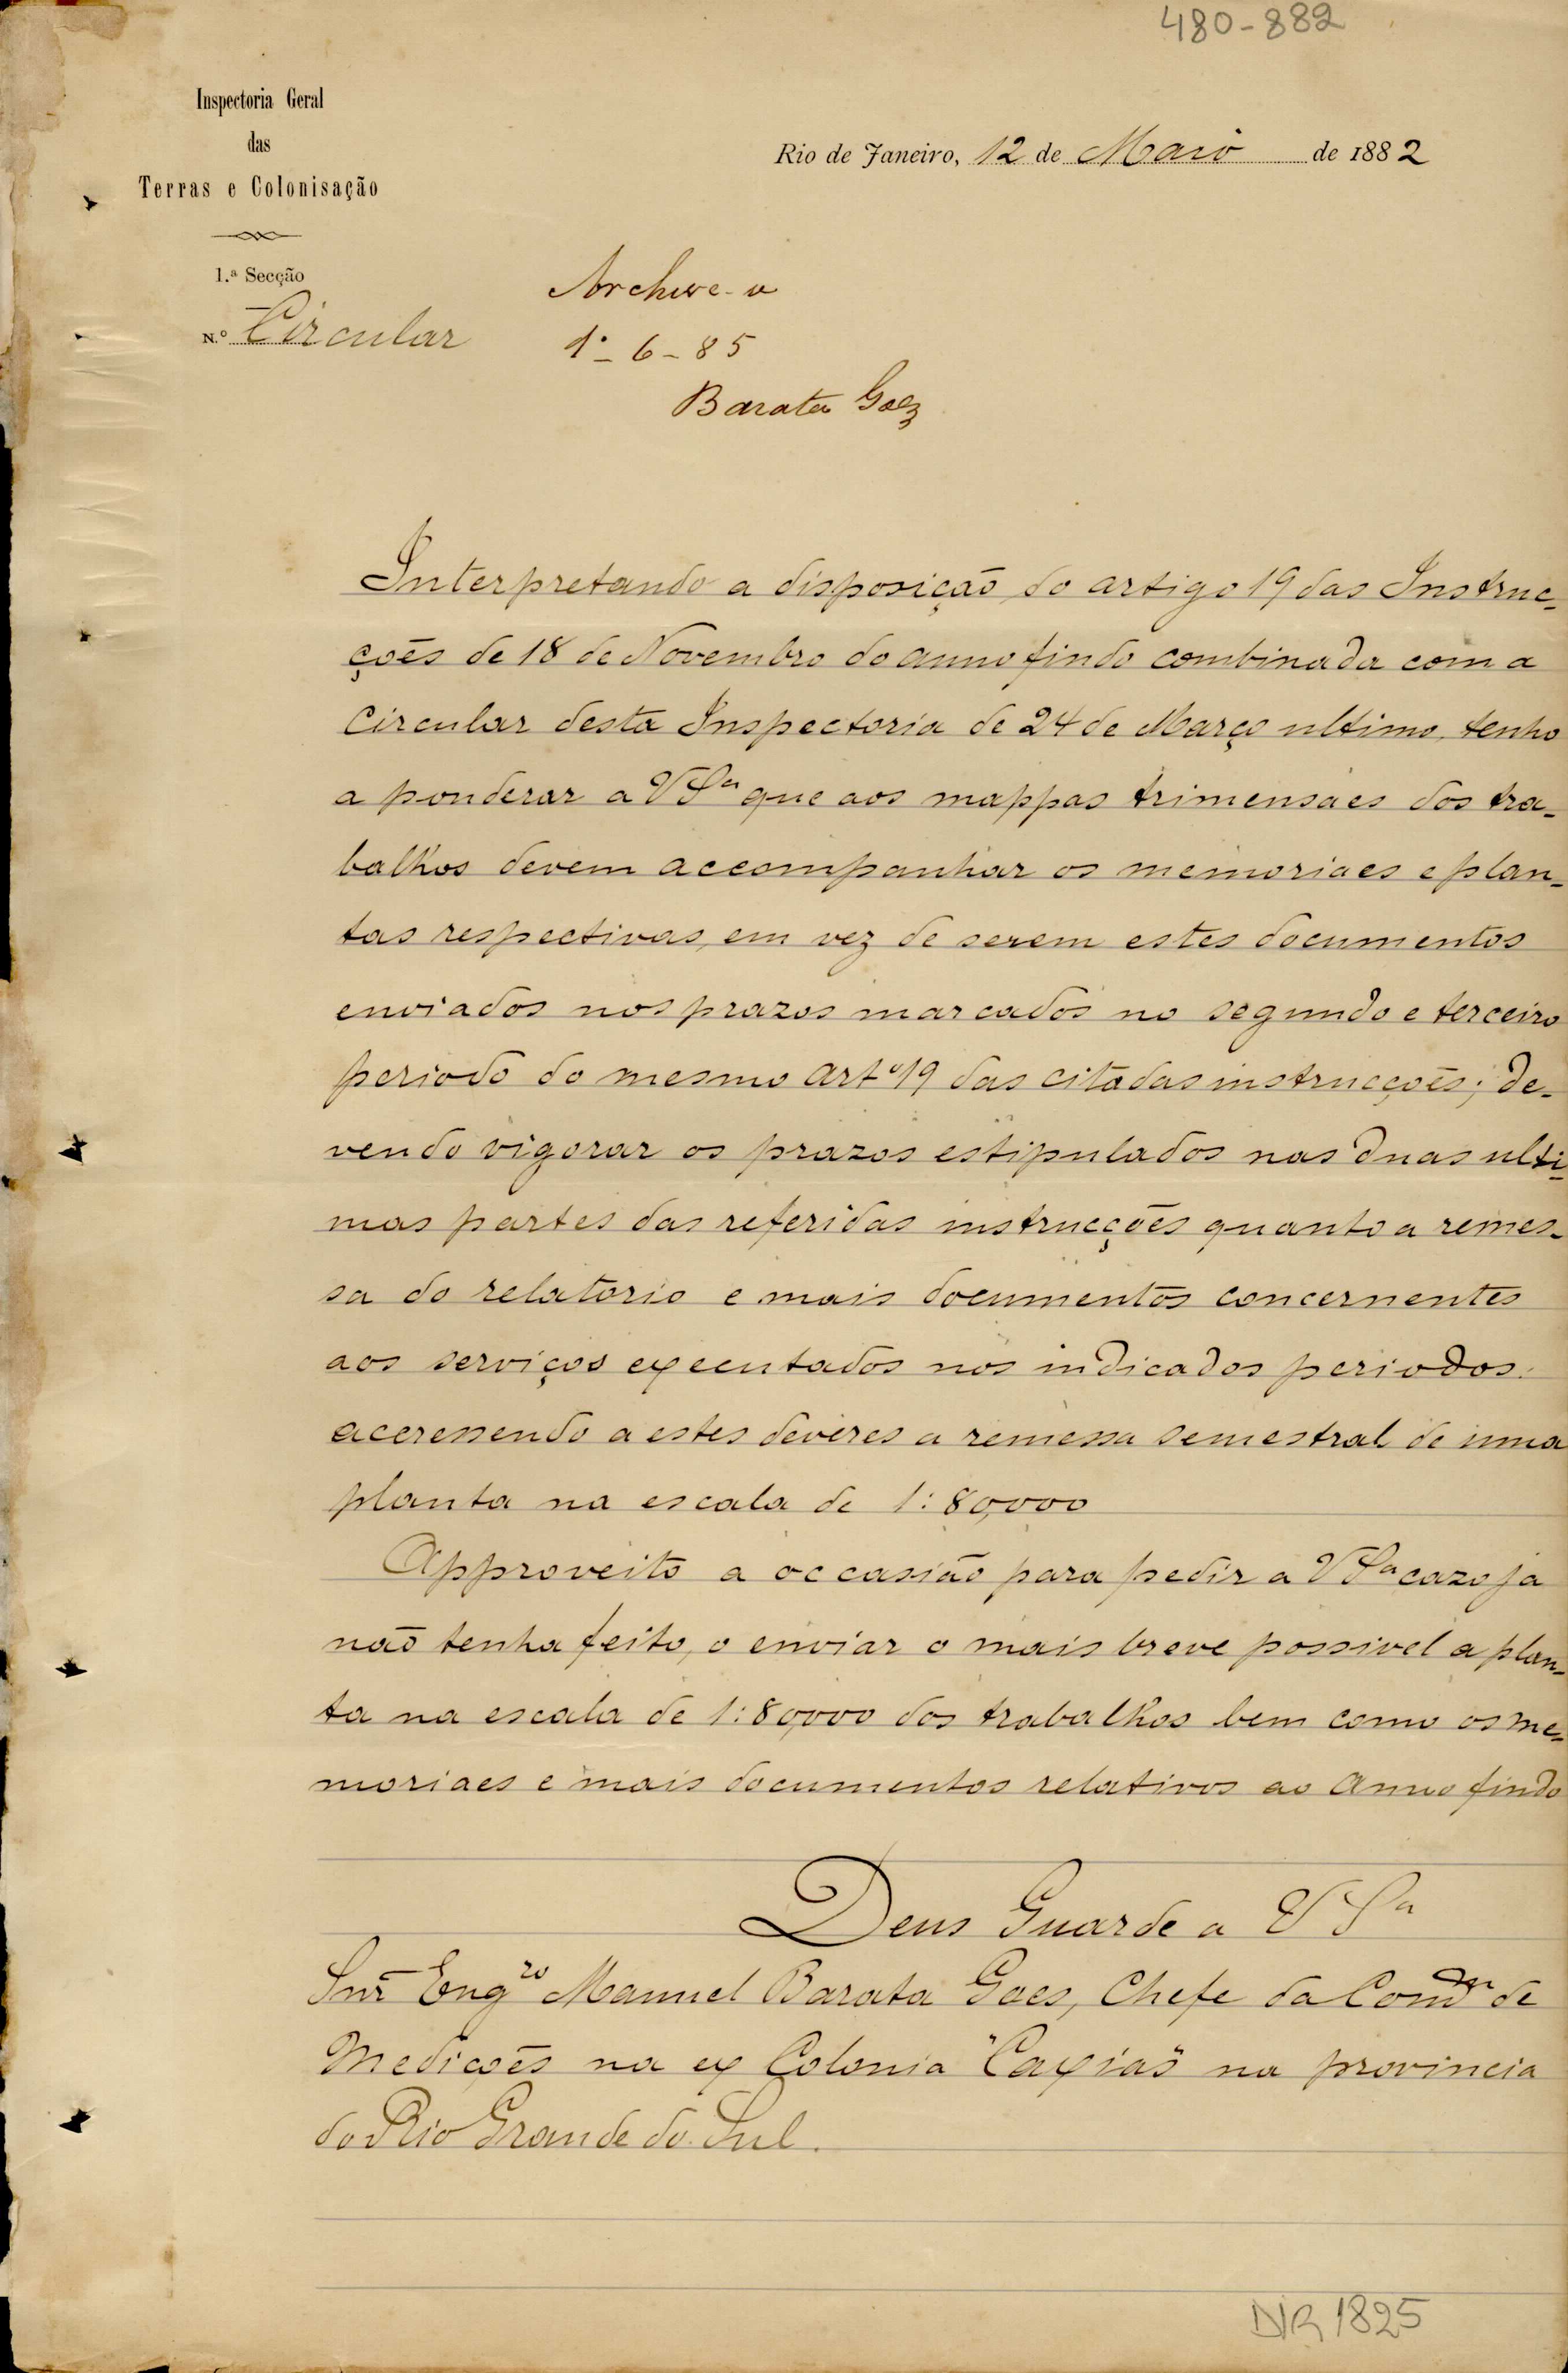 480-882
Inspectoria Geral
das
Terras e Colonisação
1.ª Secção
N.º Circular
Rio de Janeiro, 12 de Maio de 1882
Archive-se
1º-6-85
Barata Góes
Interpretando a disposição do artigo 19 das Instruc-
ções de 18 de Novembro do anno findo combinada com a
Circular desta Inspectoria de 24 de Março ultimo, tenho
a ponderar a VSª que aos mappas trimensaes dos tra-
balhos devem accompanhar os memoriaes e plan-
tas respectivas, em vez de serem estes documentos
enviados nos prazos marcados no segundo e terceiro
periodo do mesmo artº 19 das citadas instrucções; de-
vendo vigorar os prazos estipulados nas duas ulti-
mas partes das referidas instrucções quanto a remes-
sa do relatorio e mais documentos concernentes
aos serviços executados nos indicados periodos.
acressendo a estes deveres a remessa semestral de uma
planta na escala de 1:80,000
Approveito a occasião para pedir a VSª cazo já
não tenha feito, o enviar o mais breve possivel a plan-
ta na escala de 1:80,000 dos trabalhos bem como os me-
moriaes e mais documentos relativos ao anno findo
Deus Guarde a VSª
Snr Engro Manuel Barata Goes, Chefe da Comm de
Medicões na ex Colonia "Caxias" na provincia
do Rio Grande do Sul.
1825